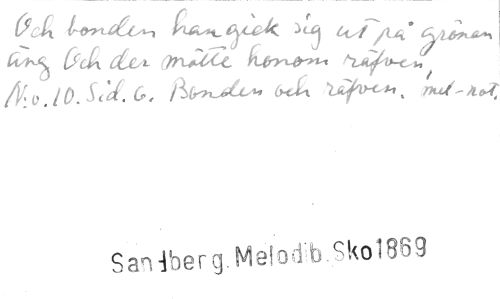 Och bonden han gick sig ut på grönan
äng Och der mötte honom räfven,
N:o. 10. Sid. 6. Bonden och räfven. mel-not.
Sandberg. Melodib. Sko 1869